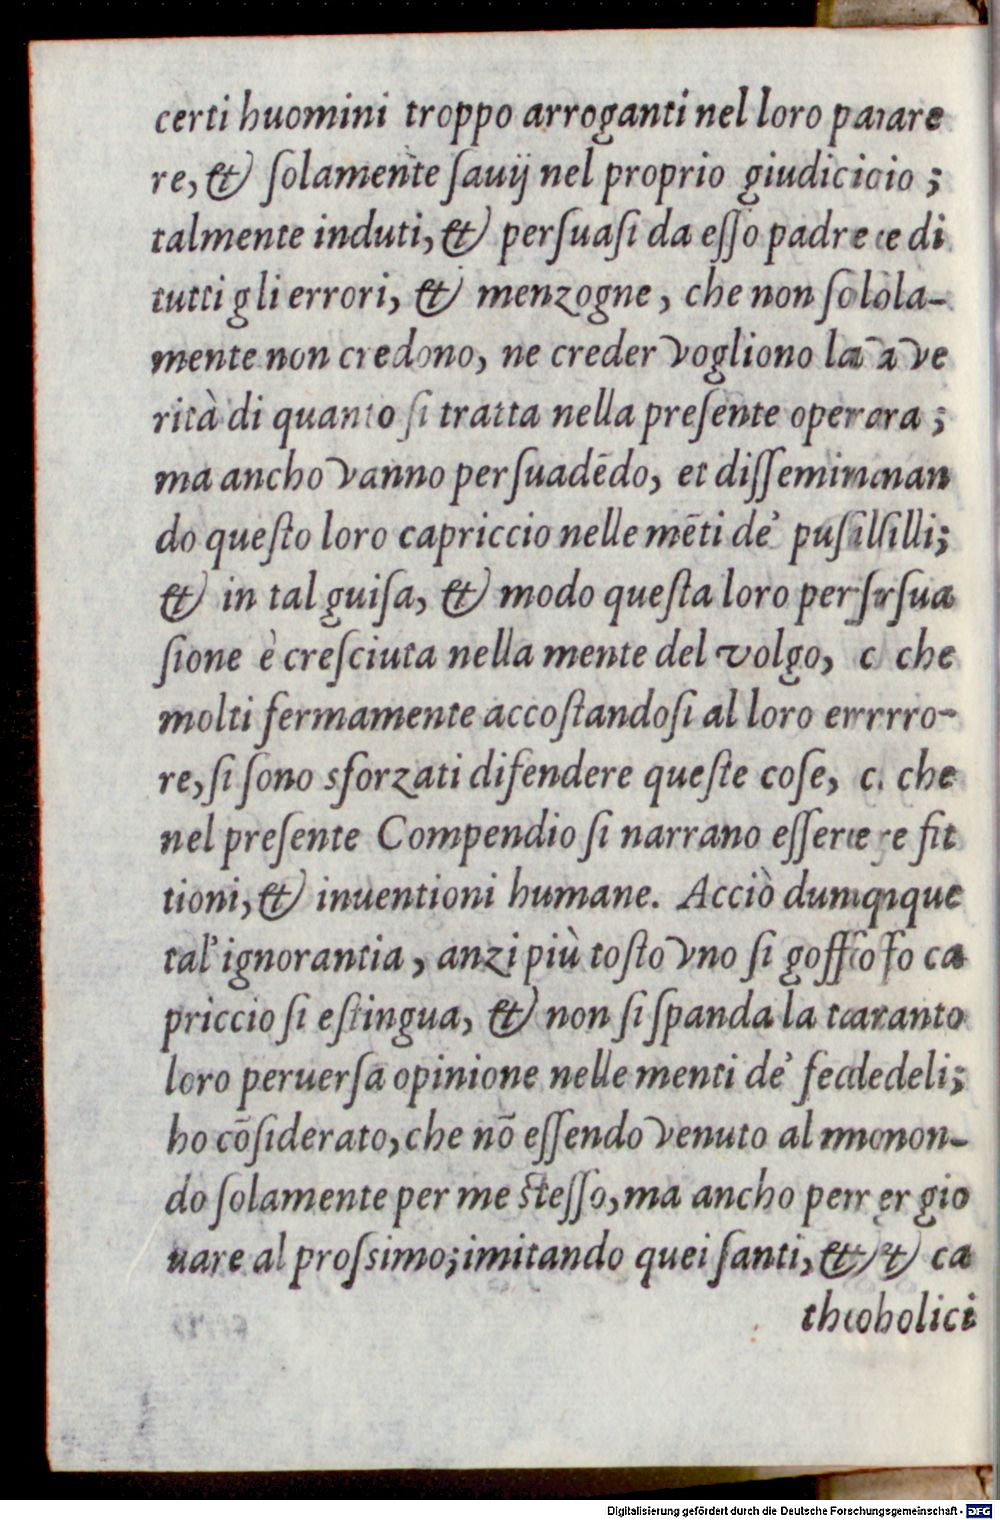 certi huomini troppo arroganti nel loro pare
re, & ſolamente ſauij nel proprio giudicio ;
talmente induti, & perſuaſi da eſſo padre di
tutti gli errori, & menzogne, che non ſola-
mente non credono, ne creder vogliono la ve
rità di quanto ſi tratta nella preſente opera ;
ma ancho vanno perſuadēdo, et diſſeminan
do queſto loro capriccio nelle mēti de' puſilli;
& in tal guiſa, & modo queſta loro perſua
ſione è creſciuta nella mente del volgo, che
molti fermamente accoſtandoſi al loro erro-
re, ſi ſono sforzati difendere queſte coſe, che
nel preſente Compendio ſi narrano eſſere fit
tioni, & inuentioni humane. Acciò dunque
tal' ignorantia, anzi più toſto vno ſi goffo ca
priccio ſi eſtingua, & non ſi ſpanda la tanto
loro peruerſa opinione nelle menti de' fedeli;
ho cōſiderato, che nō eſſendo venuto al mon-
do ſolamente per me ſteſſo, ma ancho per gio
uare al proſsimo; imitando quei ſanti, & ca
tholici
Digitalisierung gefördert durch die Deutsche Forschungsgemeinschaft - DFG